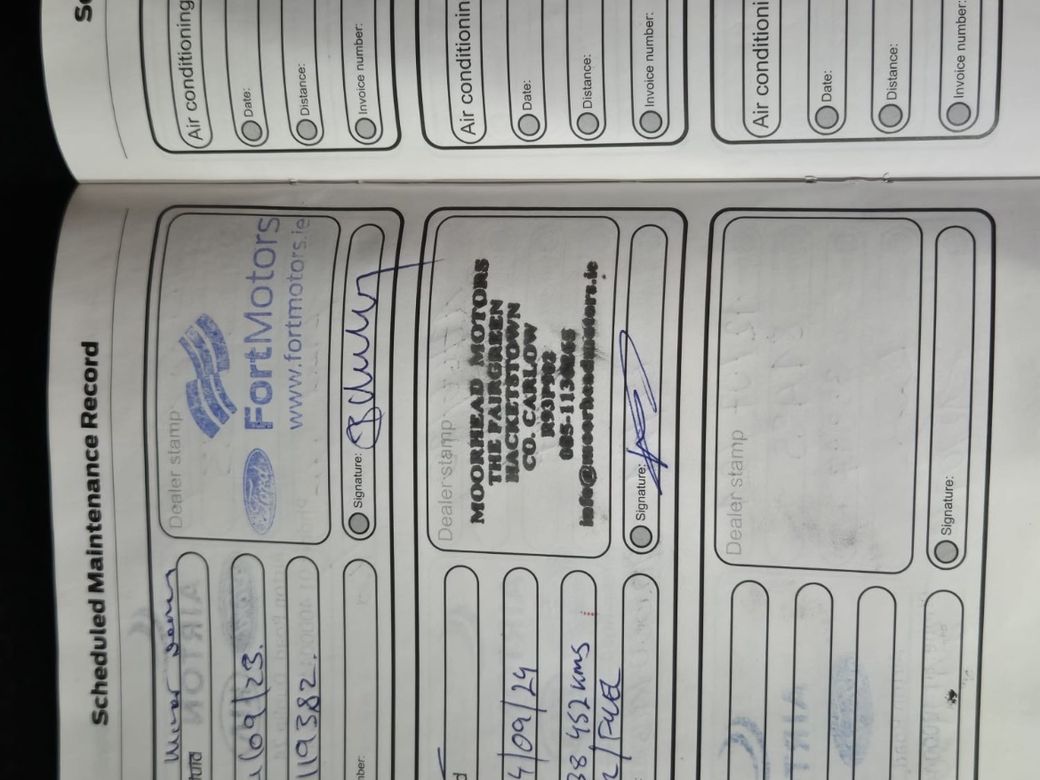 Scheduled Maintenance Record
Minor
/09/23.
119382.
Dealer stamp
Ford
FortMotors
www.fortmotors.ie
Signature:
4/09/24
38 452 kms
/FUEL
Dealer stamp
MOORHEAD MOTORS
THE FAIRGREEN
HACKETSTOWN
CO. CARLOW
info@moorheadmotors.ie
Signature:
Dealer stamp
Signature:
Air conditioning
Date:
Distance:
Invoice number:
Air conditionin
Date:
Distance:
Invoice number:
Air conditioni
Date:
Distance:
Invoice number: